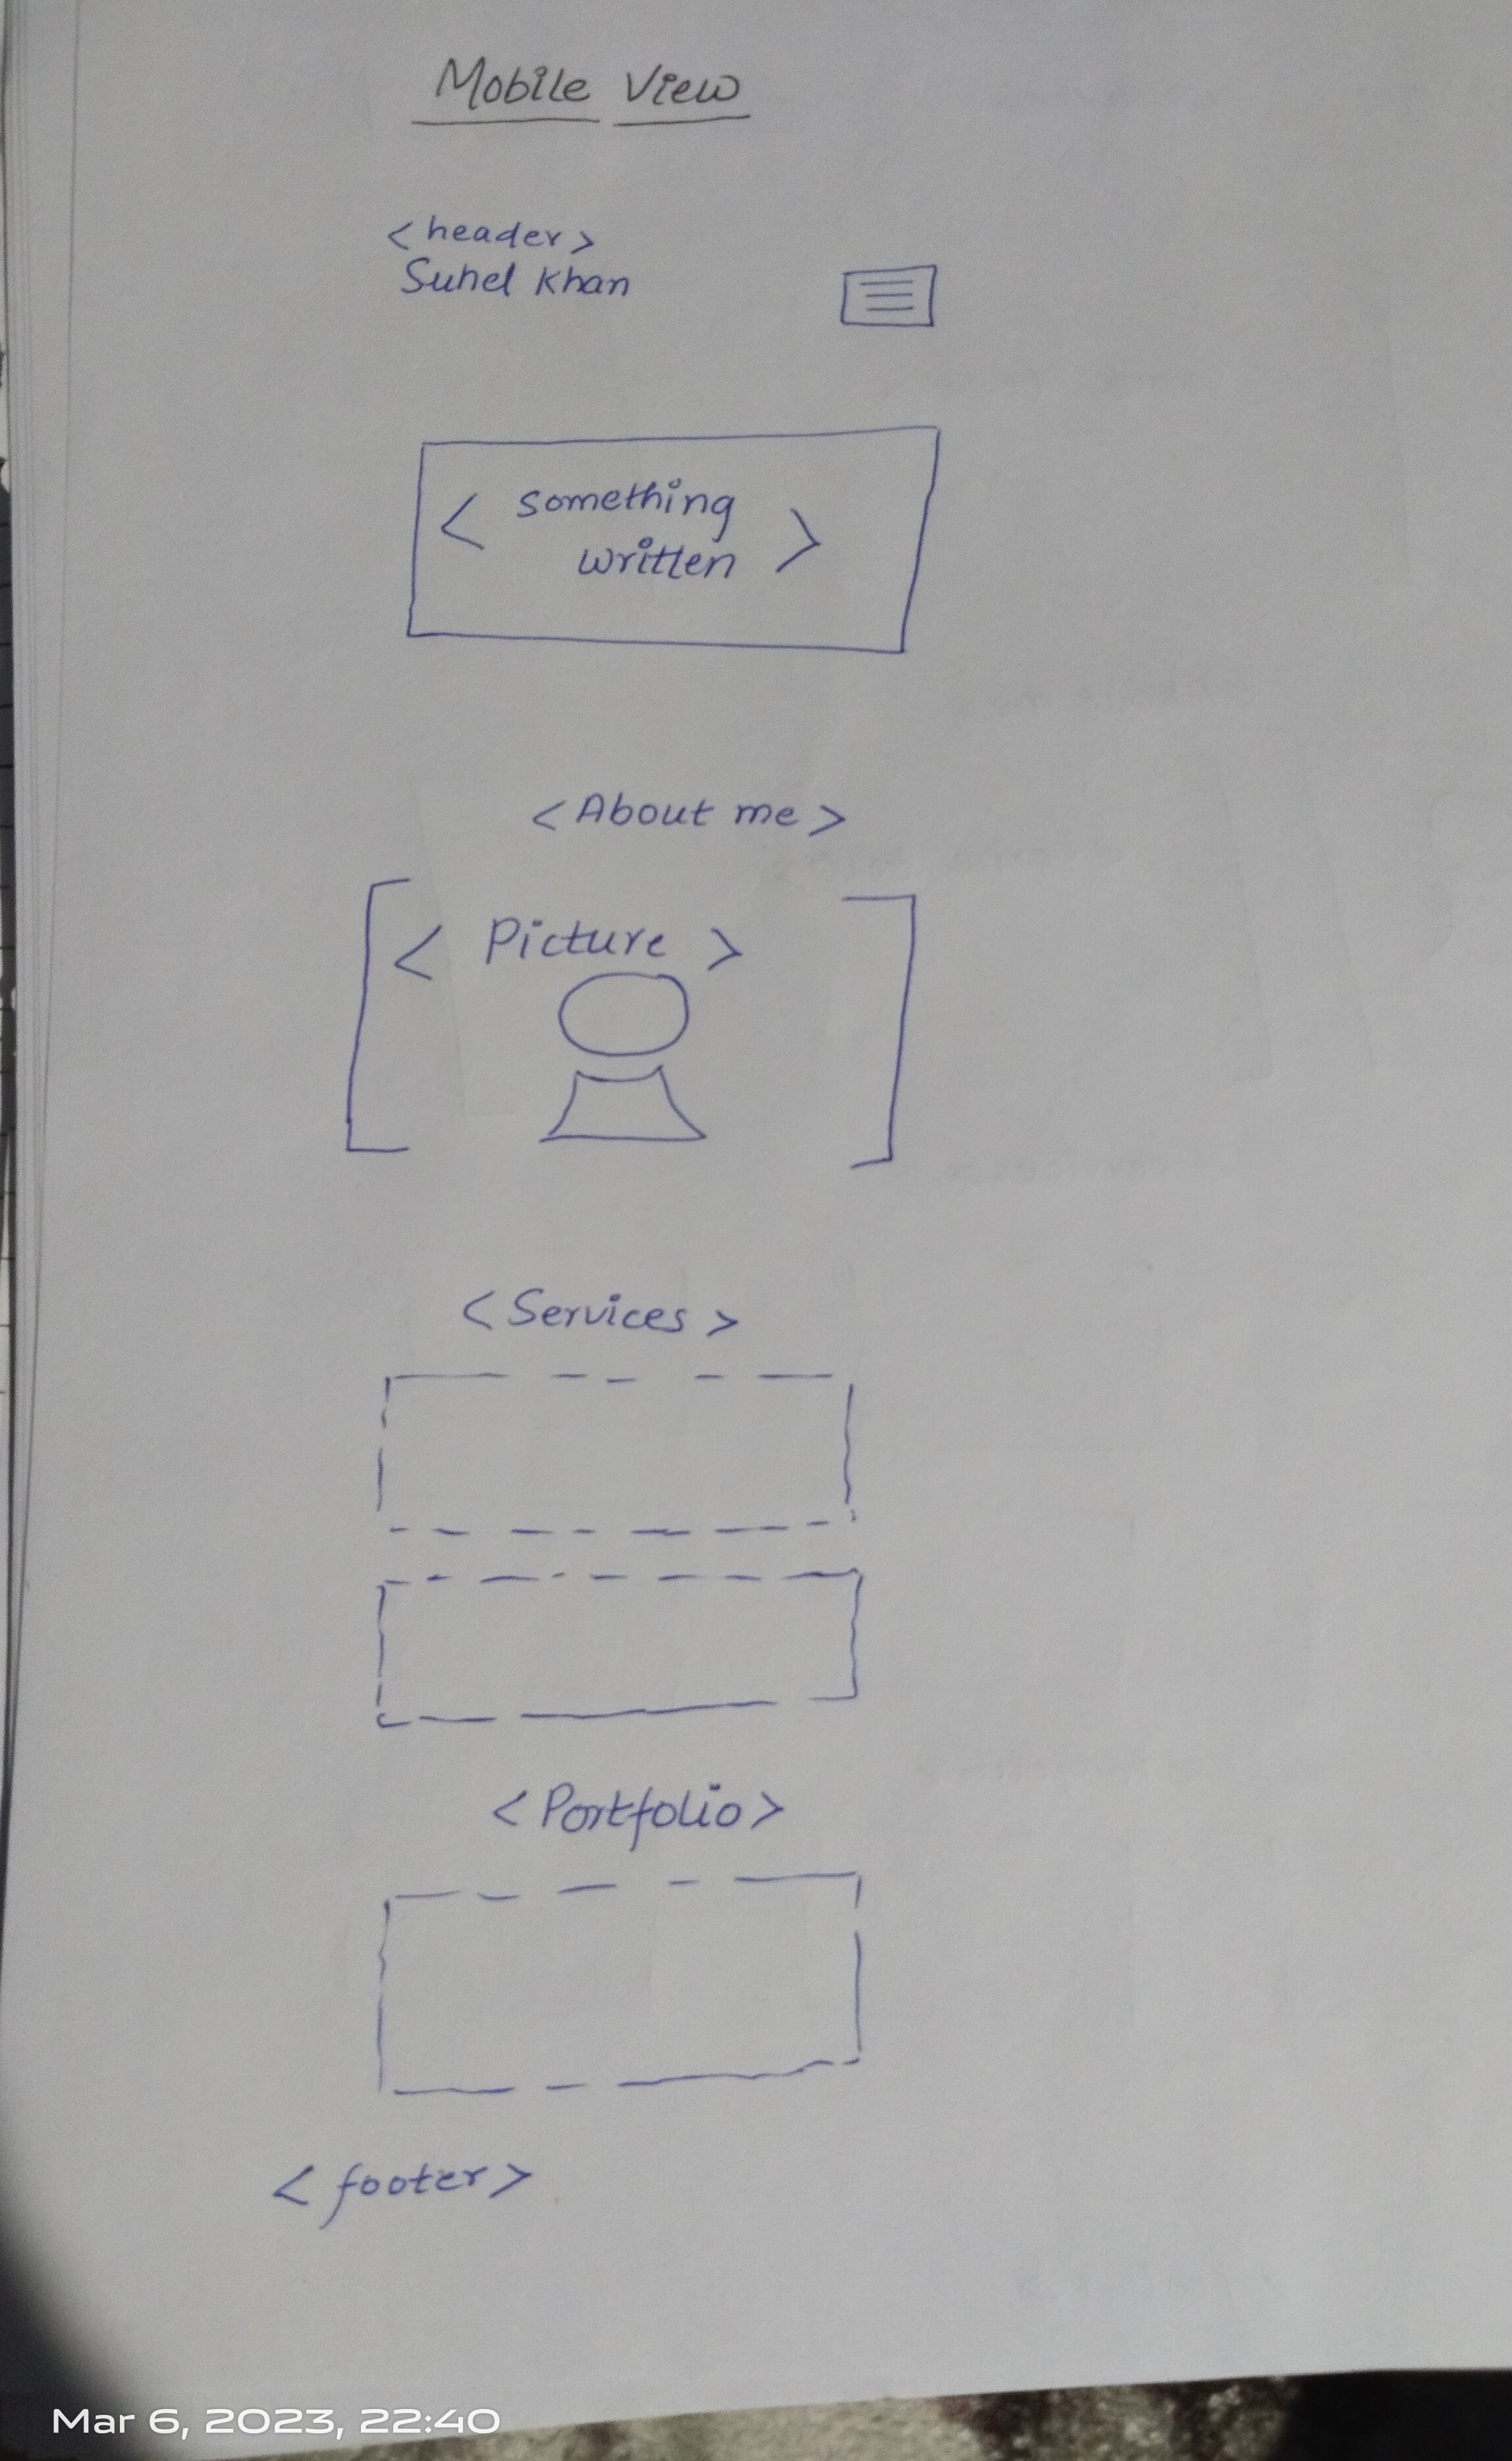 Mobile View
<header>
Suhel Khan
< something
written >
<About me>
< Picture >
<Services>
<Portfolio>
<footer>
Mar 6, 2023, 22:40